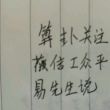 算卦关注
微信工众平
易先生说